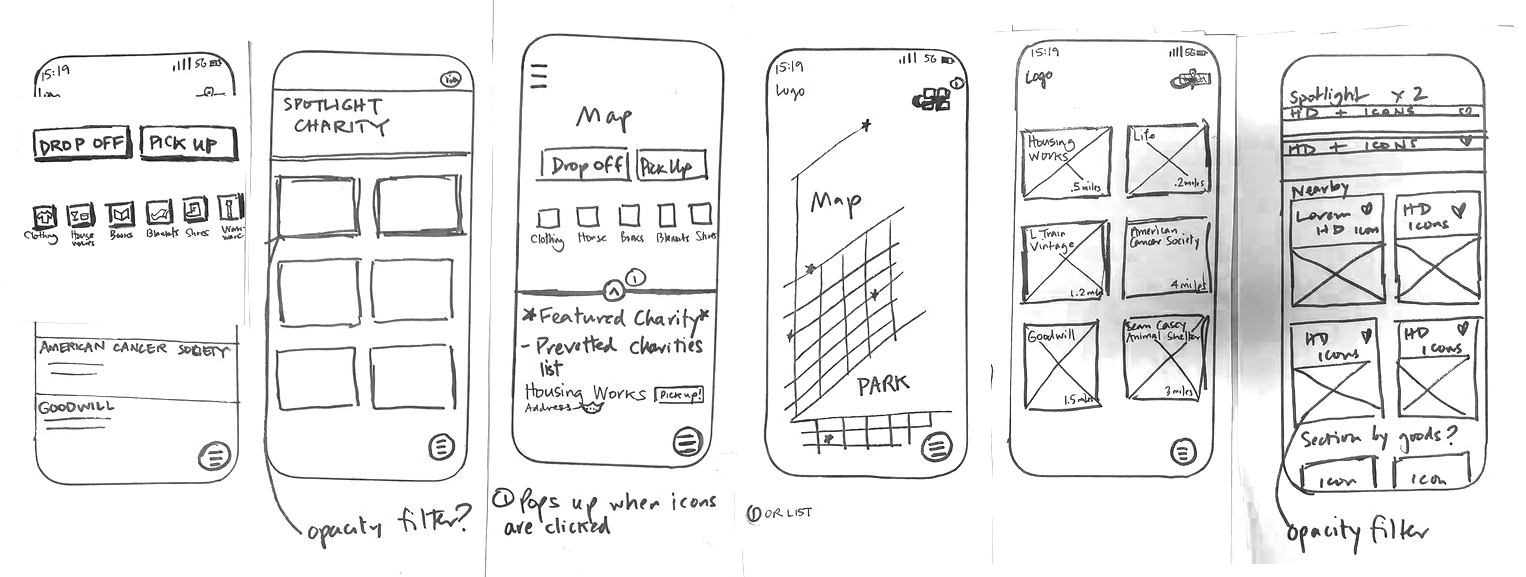 15:19
5G
DROP OFF
PICK UP
Clothing
House
wares
Books
Blankets
Shoes
Work
wear
AMERICAN CANCER SOCIETY
GOODWILL
SPOTLIGHT
CHARITY
opacity filter?
Map
Drop Off
Pick Up
Clothing
House
Books
Blankets
Shoes
1
*Featured Charity*
- Prevetted charities
list
Housing Works
Pick up!
Address
1 Pops up when icons
are clicked
15:19
5G
Logo
1
Map
PARK
1 OR LIST
15:19
5G
Logo
Housing
Works
.5 miles
Life
.2 miles
L Train
Vintage
1.2 miles
American
Cancer Society
4 miles
Goodwill
1.5 miles
Sean Casey
Animal Shelter
3 miles
Spotlight x 2
HD + ICONS
HD + ICONS
Nearby
Lorem
HD icon
HD
icons
HD
icons
HD
icons
Section by goods?
icon
icon
opacity filter